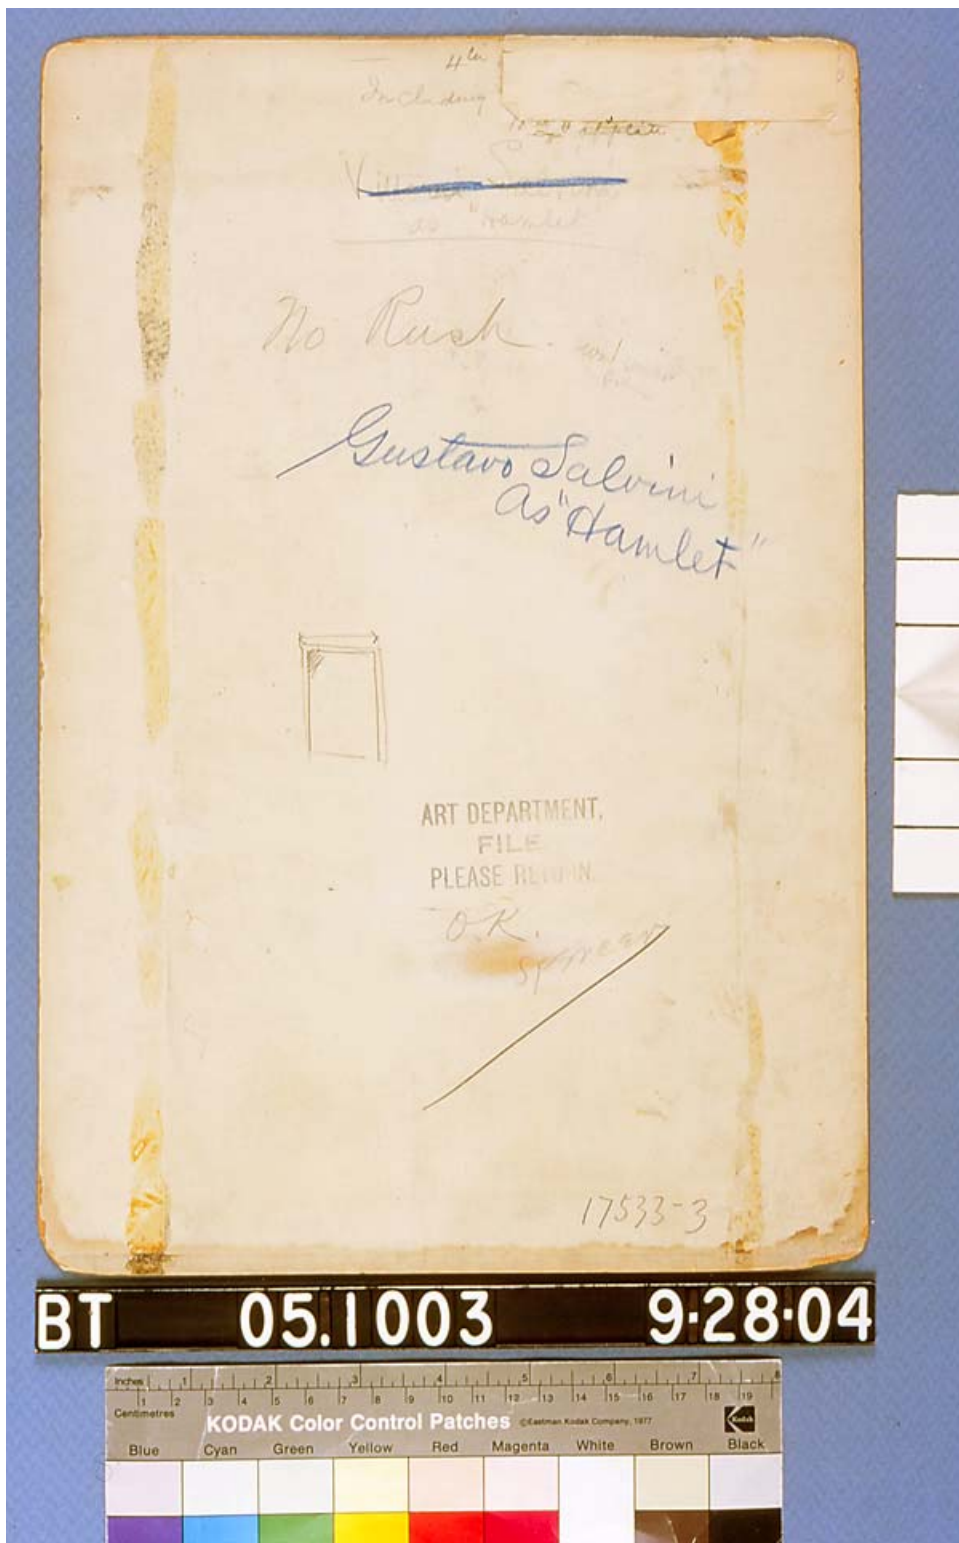 4
Including
Salvini
as "Hamlet"
No Rush.
Gustavo Salvini
As "Hamlet"
ART DEPARTMENT,
FILE
PLEASE RETURN.
O.K.
17533-3
BT 05.1003 9·28·04
Inches 1 2 3 4 5 6 7 8
Centimetres 1 2 3 4 5 6 7 8 9 10 11 12 13 14 15 16 17 18 19
KODAK Color Control Patches ©Eastman Kodak Company, 1977 Kodak
Blue Cyan Green Yellow Red Magenta White Brown Black